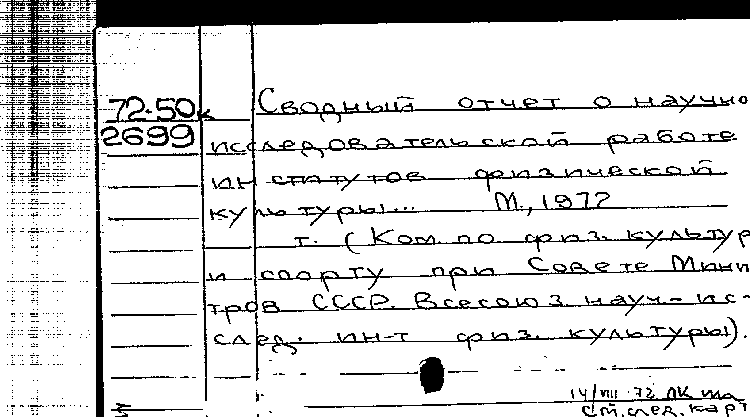 72-50к Сводный отчет о научно
2699 исследовательской работе
институтов физической
культуры... М., 1972
т. (Ком. по физ. культур
и спорту при Совете Минис
тров СССР. Всесоюз. науч-ис-
след. ин-т физ. культуры).
14/VIII-72 ЛК
см. след. карт